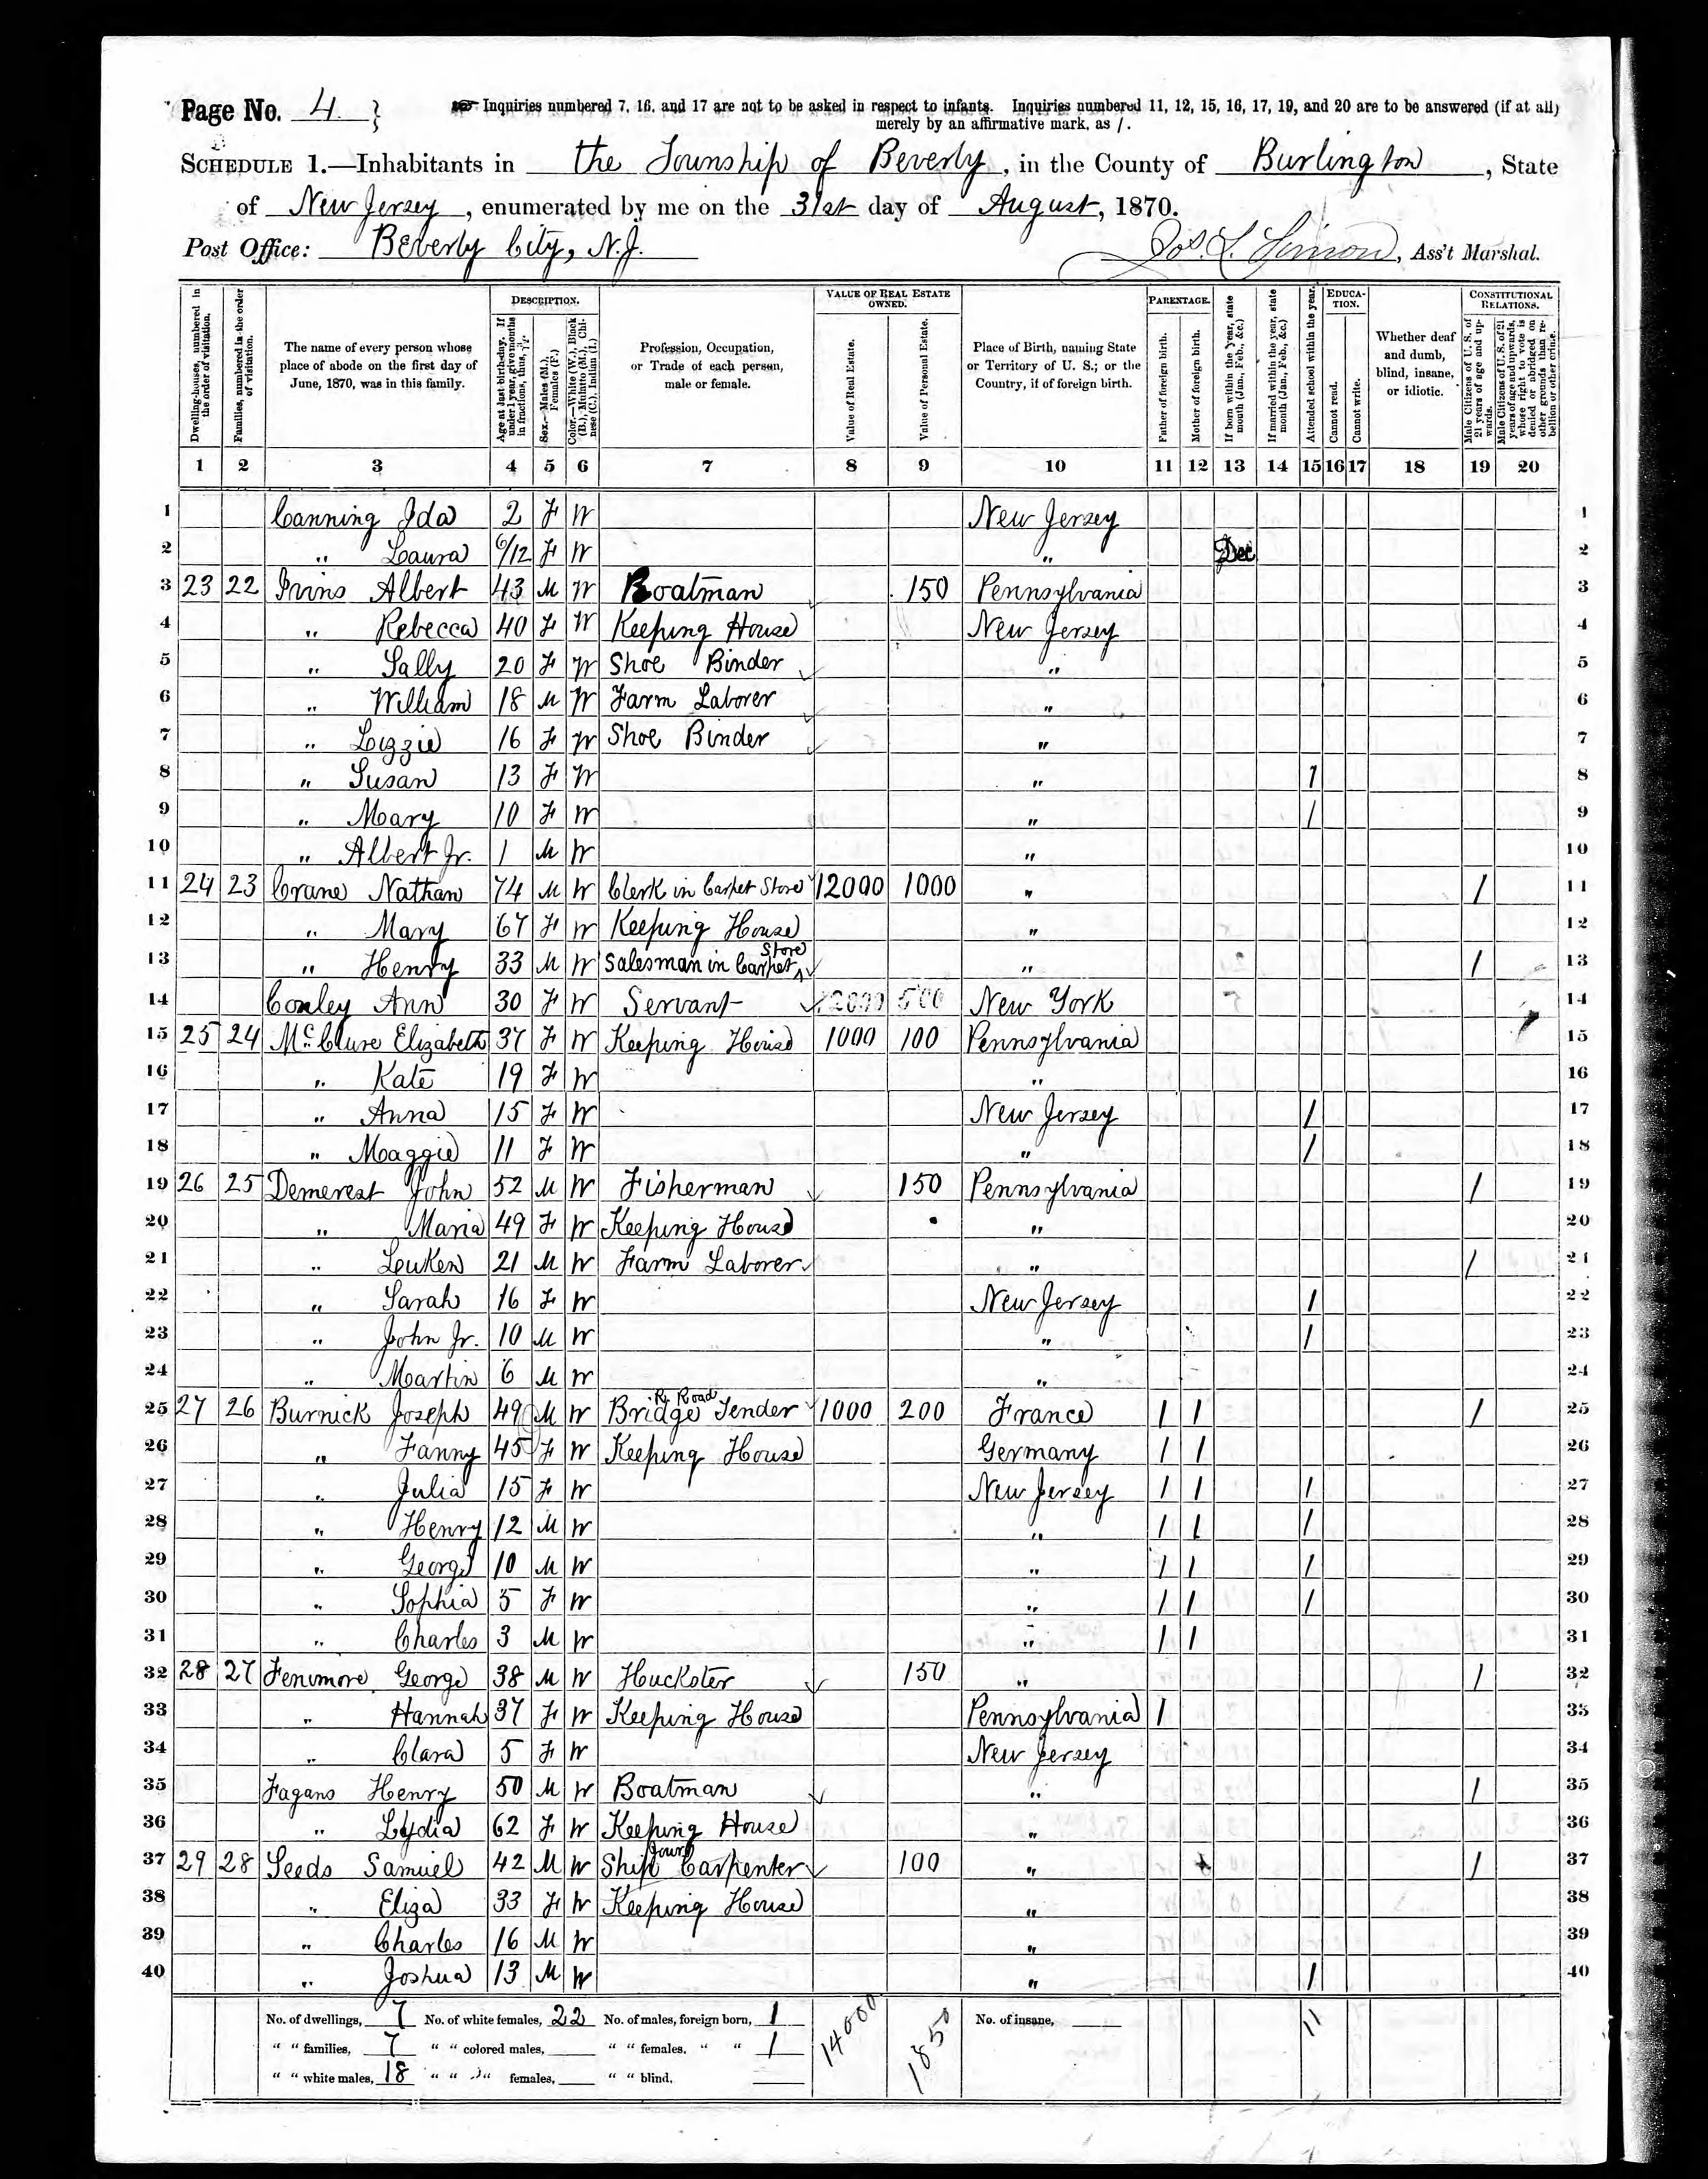 Page No. 4 }
Inquiries numbered 7, 16, and 17 are not to be asked in respect to infants. Inquiries numbered 11, 12, 15, 16, 17, 19, and 20 are to be answered (if at all)
merely by an affirmative mark, as /.
SCHEDULE 1.—Inhabitants in the Township of Beverly, in the County of Burlington, State
of New Jersey, enumerated by me on the 31st day of August, 1870.
Post Office: Beverly City, N.J. Jos. L. Simon, Ass't Marshal.
Dwelling-houses, numbered in the order of visitation.
Families, numbered in the order of visitation.
The name of every person whose place of abode on the first day of June, 1870, was in this family.
DESCRIPTION.
Age at last birth-day. If under 1 year, give months in fractions, thus, 3/12.
Sex.—Males (M.), Females (F.)
Color.—White (W.), Black (B.), Mulatto (M.), Chinese (C.), Indian (I.)
Profession, Occupation, or Trade of each person, male or female.
VALUE OF REAL ESTATE OWNED.
Value of Real Estate.
Value of Personal Estate.
Place of Birth, naming State or Territory of U. S.; or the Country, if of foreign birth.
PARENTAGE.
Father of foreign birth.
Mother of foreign birth.
If born within the year, state month (Jan., Feb., &c.)
If married within the year, state month (Jan., Feb., &c.)
Attended school within the year.
EDUCATION.
Cannot read.
Cannot write.
Whether deaf and dumb, blind, insane, or idiotic.
CONSTITUTIONAL RELATIONS.
Male Citizens of U. S. of 21 years of age and upwards.
Male Citizens of U. S. of 21 years of age and upwards, whose right to vote is denied or abridged on other grounds than rebellion or other crime.
1 2 3 4 5 6 7 8 9 10 11 12 13 14 15 16 17 18 19 20
1 Canning Ida 2 F W New Jersey 1
2 " Laura 6/12 F W " Dec 2
3 23 22 Ivins Albert 43 M W Boatman 150 Pennsylvania 3
4 " Rebecca 40 F W Keeping House New Jersey 4
5 " Sally 20 F W Shoe Binder " 5
6 " William 18 M W Farm Laborer " 6
7 " Lizzie 16 F W Shoe Binder " 7
8 " Susan 13 F W " 1 8
9 " Mary 10 F W " / 9
10 " Albert Jr. 1 M W " 10
11 24 23 Crane Nathan 74 M W Clerk in Carpet Store 12000 1000 " / 11
12 " Mary 67 F W Keeping House " 12
13 " Henry 33 M W Salesman in Carpet Store " / 13
14 Conley Ann 30 F W Servant 2000 500 New York 14
15 25 24 McClure Elizabeth 37 F W Keeping House 1000 100 Pennsylvania 15
16 " Kate 19 F W " 16
17 " Anna 15 F W New Jersey / 17
18 " Maggie 11 F W " / 18
19 26 25 Demerest John 52 M W Fisherman 150 Pennsylvania / 19
20 " Maria 49 F W Keeping House " 20
21 " Leuken 21 M W Farm Laborer " / 21
22 " Sarah 16 F W New Jersey / 22
23 " John Jr. 10 M W " / 23
24 " Martin 6 M W " 24
25 27 26 Burnick Joseph 49 M W R. Road Bridge Tender 1000 200 France / / / 25
26 " Fanny 45 F W Keeping House Germany / / 26
27 " Julia 15 F W New Jersey / / / 27
28 " Henry 12 M W " / / / 28
29 " George 10 M W " / / / 29
30 " Sophia 5 F W " / / / 30
31 " Charles 3 M W " / / 31
32 28 27 Fenimore George 38 M W Huckster 150 " / 32
33 " Hannah 37 F W Keeping House Pennsylvania / 33
34 " Clara 5 F W New Jersey 34
35 Fagans Henry 50 M W Boatman " / 35
36 " Lydia 62 F W Keeping House " 36
37 29 28 Seeds Samuel 42 M W Ship Carpenter 100 " / 37
38 " Eliza 33 F W Keeping House " 38
39 " Charles 16 M W " 39
40 " Joshua 13 M W " / 40
No. of dwellings, 7 No. of white females, 22 No. of males, foreign born, 1 14000 1850 No. of insane, 11
" " families, 7 " " colored males, " " females, " " 1
" " white males, 18 " " " females, " " blind,